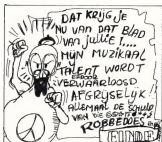 DAT KRIJG JE
NU VAN DAT BLAD
VAN JULLIE!....
MIJN MUZIKAAL
TALENT WORDT
ERDOOR
VERWAARLOOSD
AFGRIJSELIJK!
ALLEMAAL DE SCHULD
VAN DIE
ROBBEDOES
EINDE